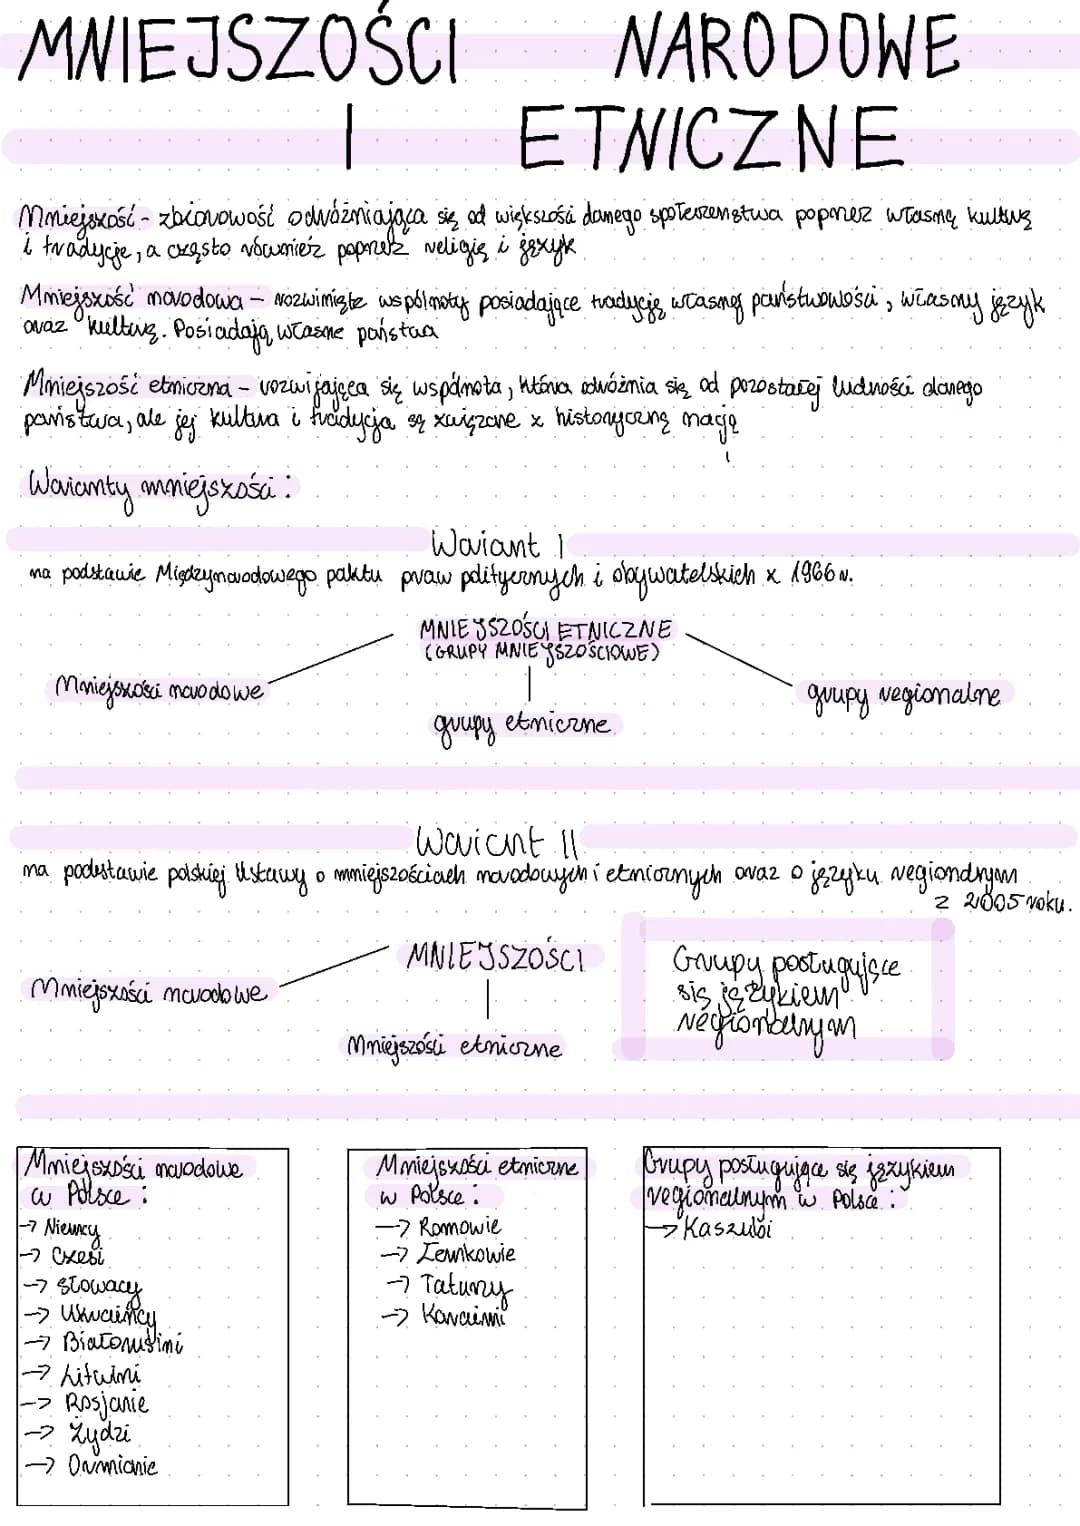 MNIEJSZOŚCI NARODOWE
I ETNICZNE
Mniejszość - zbiorowość odróżniająca się od większości danego społeczeństwa poprzez własną kulturę
i tradycję, a często również poprzez religię i język
Mniejszość narodowa - rozwinięte wspólnoty posiadające tradycję własnej państwowości, własny język
oraz kulturę. Posiadają własne państwa
Mniejszość etniczna - rozwijająca się wspólnota, która odróżnia się od pozostałej ludności danego
państwa, ale jej kultura i tradycja są związane z historyczną nacją
Warianty mniejszości:
Wariant I
na podstawie Międzynarodowego paktu praw politycznych i obywatelskich z 1966 r.
MNIEJSZOŚCI ETNICZNE
(GRUPY MNIEJSZOŚCIOWE)
Mniejszości narodowe
grupy regionalne
grupy etniczne
Wariant II
na podstawie polskiej Ustawy o mniejszościach narodowych i etnicznych oraz o języku regionalnym
z 2005 roku.
MNIEJSZOŚCI
Mniejszości narodowe
Mniejszości etniczne
Grupy posługujące
się językiem
regionalnym
Mniejszości narodowe
w Polsce:
→ Niemcy
→ Czesi
→ Słowacy
→ Ukraińcy
→ Białorusini
→ Litwini
→ Rosjanie
→ Żydzi
→ Ormianie
Mniejszości etniczne
w Polsce:
→ Romowie
→ Łemkowie
→ Tatarzy
→ Karaimi
Grupy posługujące się językiem
regionalnym w Polsce:
→ Kaszubi